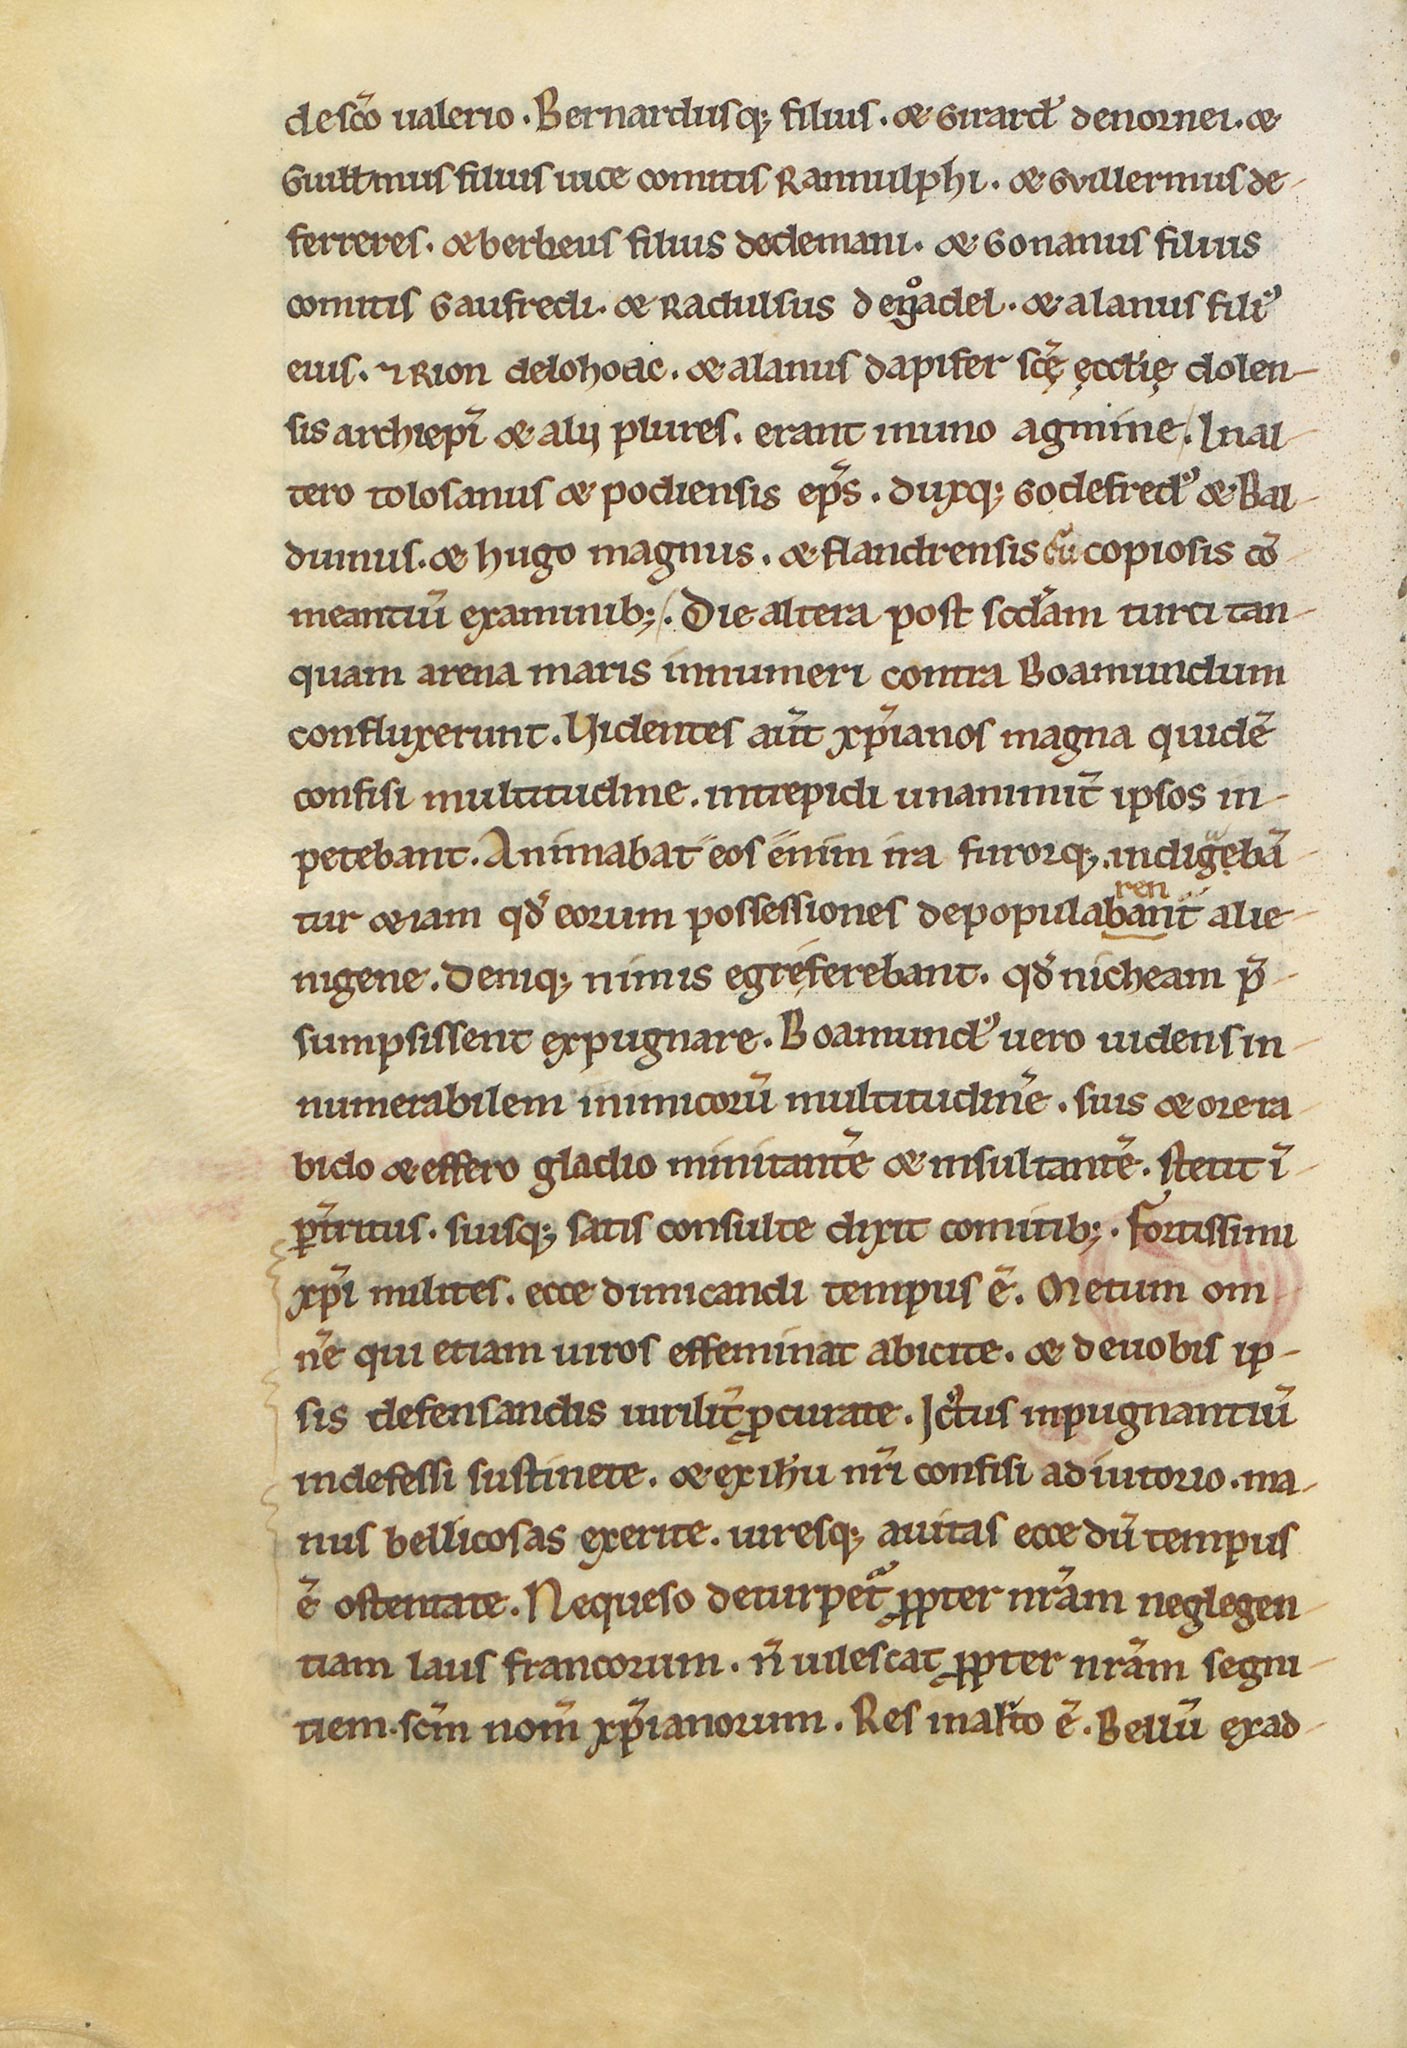 de sc̄o ualerio. Bernardusq; filius. & Girard' de nornei. &
Guill̵mus filius uice comitis Rannulphi. & Gvillermus de
ferreres. & berbeus filius de demani. & Gonanus filius
comitis Gaufredi. & Radulfus de g̊adel. & alanus fili'
eius. ⁊ Rion de lohoac. & alanus dapifer sc̄ę ęccl̵ię dolen-
sis archiep̄i & alij plures. erant in uno agmine. In al-
tero tolosanus & podiensis ep̄s. duxq; Godefred' & Bal-
duinus. & hugo magnus. & flandrensis cū copiosis cō-
meantiū examinib;. Die altera post scd̄am turci tan-
quam arena maris innumeri contra Boamundum
confluxerunt. Videntes aūt xp̄ianos magna quidē
confisi multitudine. intrepidi unanimit̄ ipsos in-
petebant. Animabat eos enim ira furorq;. indigębā
tur & iam qd̄ eorum possessiones depopulabant̄ alie-
ren
nigene. Deniq; nimis egre ferebant. qd̄ nicheam p̄-
sumpsissent expugnare. Boamund' uero uidens in-
numerabilem inimicorū multitudinē. suis & ore ra
bido & effero gladio minitantē & insultantē. stetit ī-
p̄t̄ritus. suisq; satis consulte dixit comitib;. Fortissimi
xp̄i milites. ecce dimicandi tempus ē. Metum om
nē qui etiam uiros effeminat abicite. & de uobis ip-
sis defensandis uirilit̄ ꝓcurate. Ictus inpugnantiū
indefessi sustinete. & ex ih̄u nr̄i confisi adiutorio. ma-
nus bellicosas exerite. uiresq; auitas ecce dū tempus
ē ostentate. Ne queso deturpet' ꝓpter nr̄am neglegen-
tiam laus francorum. n̄ uilescat ꝓpter nr̄am segni-
tiem. sc̄m nom̄ xp̄ianorum. Res in arto ē. Bellū ex ad-